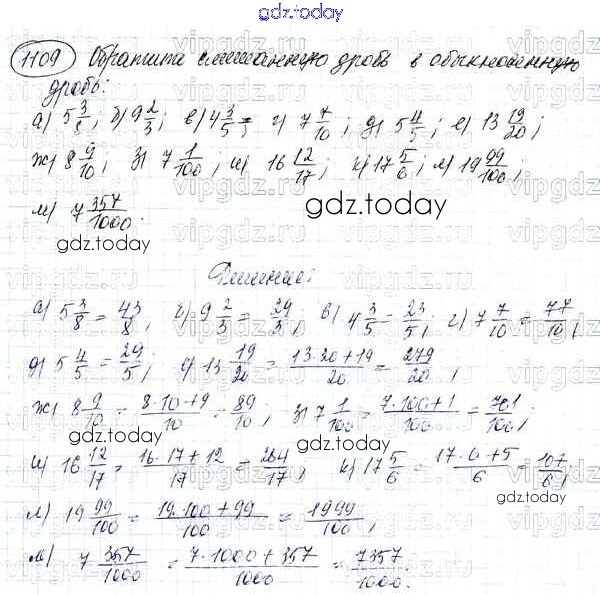 gdz.today
1109 Обратите смешанную дробь в обыкновенную
дробь:
а) 5 3/8; б) 9 2/3; в) 4 3/5; г) 7 7/10; д) 5 4/5; е) 13 19/20;
ж) 8 9/10; з) 7 1/100; и) 16 12/17; к) 17 5/6; л) 19 99/100;
gdz.today
м) 7 357/1000.
gdz.today
Решение:
а) 5 3/8 = 43/8; б) 9 2/3 = 29/3; в) 4 3/5 = 23/5; г) 7 7/10 = 77/10;
д) 5 4/5 = 29/5; е) 13 19/20 = 13·20+19/20 = 279/20;
ж) 8 9/10 = 8·10+9/10 = 89/10; з) 7 1/100 = 7·100+1/100 = 701/100;
gdz.today
gdz.today
и) 16 12/17 = 16·17+12/17 = 284/17; к) 17 5/6 = 17·6+5/6 = 107/6;
gdz.today
л) 19 99/100 = 19·100+99/100 = 1999/100;
м) 7 357/1000 = 7·1000+357/1000 = 7357/1000.